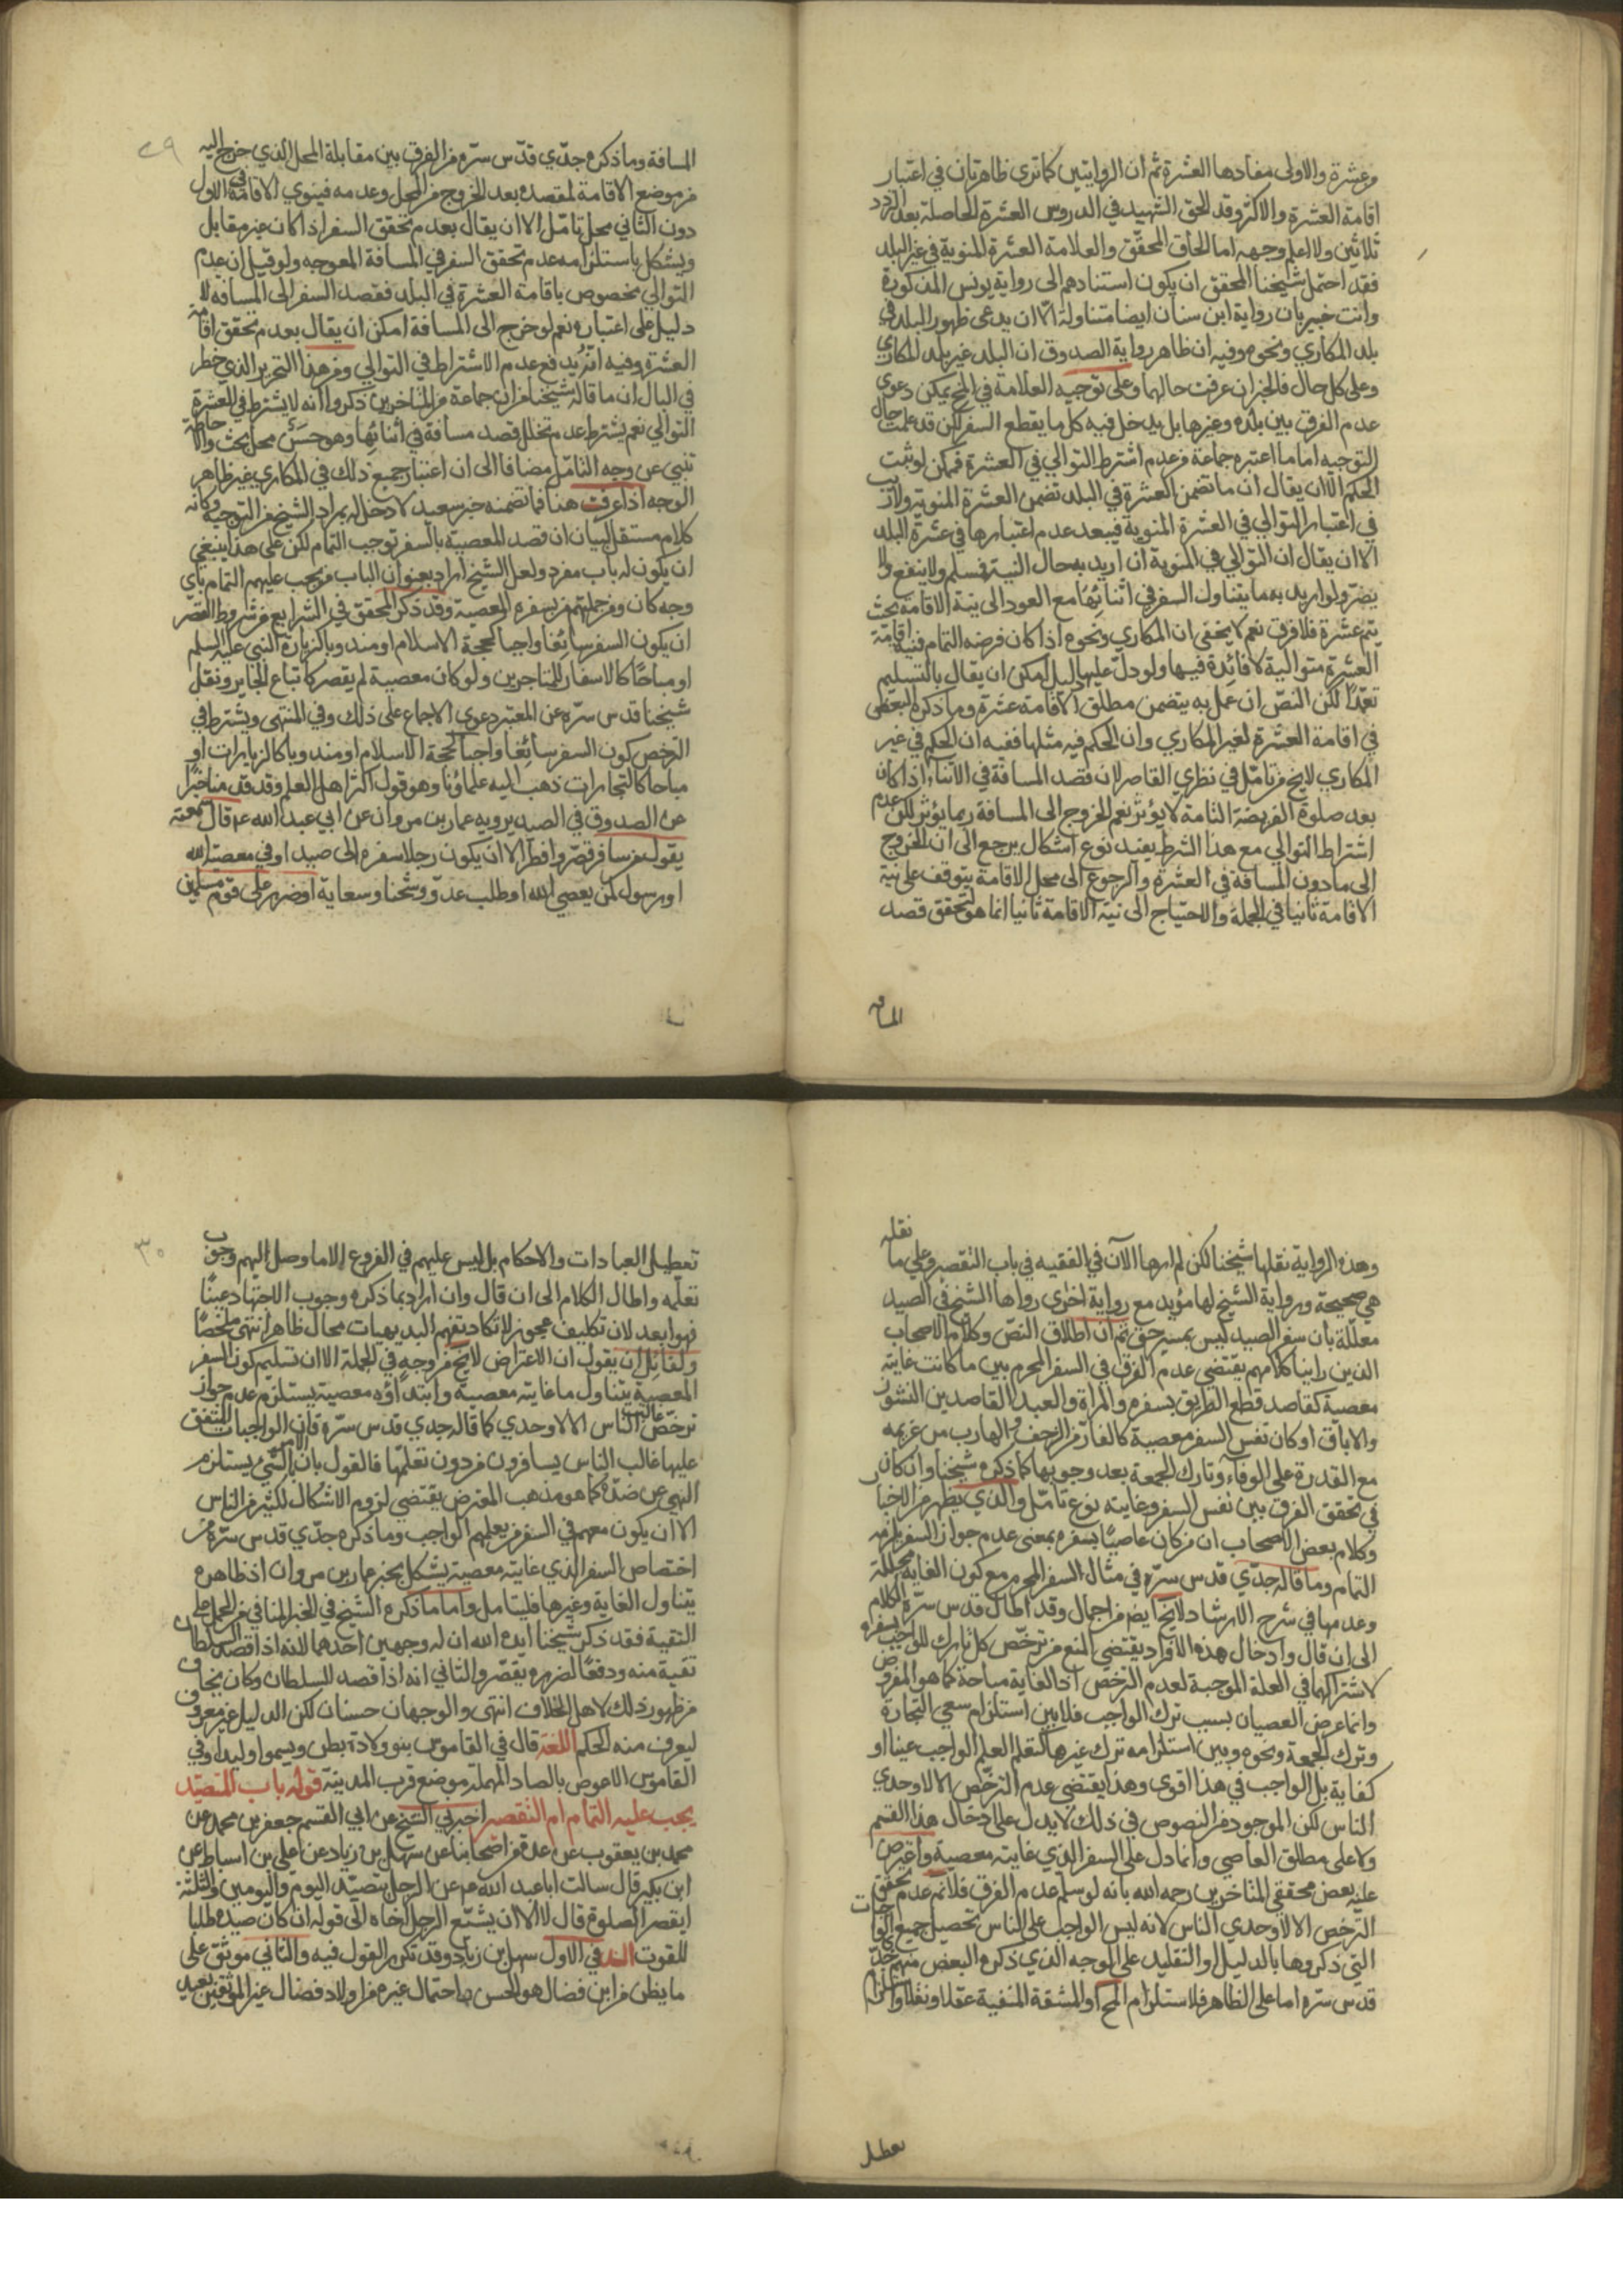 وعشرة والاولى مفادها العشرة ثم ان الروايتين كما ترى ظاهرتان في اعتبار
اقامة العشرة والاكثر وقد الحق الشهيد في الدروس العشرة الحاصلة بعد التردد
ثلاثين ولا اعلم وجهه اما الحاق المحقق والعلامة العشرة المنوية في غير البلد
فقد احتمل شيخنا المحقق ان يكون استنادهم الى رواية يونس المذكورة
وانت خبير بان رواية ابن سنان ايضا متناولة الا ان يدعى ظهور البلد في
بلد المكاري ونحوه وفيه ان ظاهر رواية الصدوق ان البلد غير بلد المكاري
وعلى كل حال فالخبران عرفت حالهما وعلى توجيه العلامة في المخ يمكن دعوى
عدم الفرق بين بلده وغيرها بل يدخل فيه كل ما يقطع السفر لكن قد علمت حال
التوجيه اما ما اعتبره جماعة من عدم اشتراط التوالي في العشرة فممكن لو ثبت
الحكم الا ان يقال ان ما تضمن العشرة في البلد تضمن العشرة المنوية ولا ريب
في اعتبار التوالي في العشرة المنوية فيبعد عدم اعتبارها في عشرة البلد
الا ان يقال ان التوالي في المنوية ان اريد به حال النية فمسلم ولا ينفع ولا
يضر ولو اريد به ما يتناول السفر في اثنائها مع العود الى نية الاقامة بحث
يتم عشرة فلا فرق نعم لا يخفى ان المكاري ونحوه اذا كان فرضه التمام فنية اقامة
العشرة متوالية لا فائدة فيها ولو دل عليها دليل امكن ان يقال بالتسليم
تعبدا لكن النص ان عمل به يتضمن مطلق الاقامة عشرة وما ذكره البعض
في اقامة العشرة لغير المكاري وان الحكم فيه مثلها ففيه ان الحكم في غير
المكاري لا يخ من تامل في نظري القاصر لان قصد المسافة في الاثناء اذا كان
بعد صلوة الفريضة التامة لا يؤثر نعم الخروج الى المسافة ربما يؤثر لكن عدم
اشتراط التوالي مع هذا الشرط يفيد نوع اشكال يرجع الى ان الخروج
الى ما دون المسافة في العشرة والرجوع الى محل الاقامة يتوقف على نية
الاقامة ثانيا في الجملة والاحتياج الى نية الاقامة ثانيا انما هو لتحقق قصد
المسافة
٢٩
المسافة وما ذكره جدي قدس سره من الفرق بين مقابلة المحل الذي خرج اليه
من موضع الاقامة لمقصده بعد الخروج من المحل وعدمه فينوي الاقامة في الاول
دون الثاني محل تامل الا ان يقال بعدم تحقق السفر اذا كان غير مقابل
ويشكل باستلزامه عدم تحقق السفر في المسافة المعوجه ولو قيل ان عدم
التوالي مخصوص باقامة العشرة في البلد فقصد السفر الى المسافة لا
دليل على اعتباره نعم لو خرج الى المسافة امكن ان يقال بعدم تحقق اقامة
العشرة وفيه انه يدفع عدم الاشتراط في التوالي ومن هذا التحرير الذي خطر
في البال ان ما قاله شيخنا من ان جماعة من المتاخرين ذكروا انه لا يشترط في العشرة
التوالي نعم يشترط عدم تخلل قصد مسافة في اثنائها وهو حسن محل بحث والا خاصة
تنبي عن وجه التامل مضافا الى ان اعتبار جميع ذلك في المكاري غير ظاهر
الوجه اذا عرفت هذا فما تضمنه خبر سعيد لا دخل له بمراد الشيخ من التوجيه وكانه
كلام مستقل لبيان ان قصد المعصية بالسفر توجب التمام لكن على هذا ينبغي
ان يكون له باب مفرد ولعل الشيخ اراد بعنوان الباب من يجب عليهم التمام باي
وجه كان ومن جملتهم من سفره المعصية وقد ذكر المحقق في الشرايع من شروط القصر
ان يكون السفر سائغا واجبا كحجة الاسلام او مندوبا كزيارة النبي عليه السلم
او مباحا كالاسفار للمتاجرين ولو كان معصية لم يقصر كاتباع الجاير ونقل
شيخنا قدس سره عن المعتبر دعوى الاجماع على ذلك وفي المنتهى ويشترط في
الترخص كون السفر سائغا واجبا كحجة الاسلام او مندوبا كالزيارات او
مباحا كالتجارات ذهب اليه علماؤنا وهو قول اكثر اهل العلم وقد قدمنا خبرا
عن الصدوق في الصيد يرويه عمار بن مروان عن ابي عبد الله ع قال سمعته
يقول من سافر قصر وافطر الا ان يكون رجلا سفره الى صيد او في معصية الله
او رسول لمن يعصي الله او طلب عدو وشحنا وسعاية او ضرر على قوم مسلمين
وهذه الرواية نقلها شيخنا لكن لم ارها الآن في الفقيه في باب التقصير وعلى ما نقله
هي صحيحة ورواية الشيخ لها مؤيد مع رواية اخرى رواها الشيخ في الصيد
معللة بان سفر الصيد ليس بمسير حق ثم ان اطلاق النص وكلام الاصحاب
الذين راينا كلامهم يقتضي عدم الفرق في السفر المحرم بين ما كانت غايته
معصية كقاصد قطع الطريق بسفره والمراة والعبد القاصدين النشوز
والاباق او كان نفس السفر معصية كالفار من الزحف والهارب من غريمه
مع القدرة على الوفاء وتارك الجمعة بعد وجوبها كما ذكره شيخنا وان كان
في تحقق الفرق بين نفس السفر وغايته نوع تامل والذي يظهر من الاخبار
وكلام بعض الاصحاب ان من كان عاصيا بسفره بمعنى عدم جواز السفر يلزمه
التمام وما قاله جدي قدس سره في مثال السفر المحرم مع كون الغاية محللة
وعدمها في شرح الارشاد لا يخ ايض من اجمال وقد اطال قدس سره الكلام
الى ان قال وادخال هذه الافراد يقتضي المنع من ترخص كل تارك للواجب بسفره
لاشتراكهما في العلة الموجبة لعدم الترخص اذ الغاية مباحة كما هو المفروض
وانما عرض العصيان بسبب ترك الواجب فلا بين استلزام سعي التجارة
وترك الجمعة ونحوه وبين استلزامه ترك غيرها كتعلم العلم الواجب عينا او
كفاية بل الواجب في هذا اقوى وهذا يقتضي عدم الترخص الا لاوحدي
الناس لكن الموجود من النصوص في ذلك لا يدل على ادخال هذا القسم
ولا على مطلق العاصي وانما دل على السفر الذي غايته معصية واعترض
عليه بعض محققي المتاخرين رحمه الله بانه لو سلم عدم الفرق فلا نم عدم تحقق
الترخص الا لاوحدي الناس لانه ليس الواجب على الناس تحصيل جميع الواجبات
التي ذكروها بالدليل او التقليد على الوجه الذي ذكره البعض منهم جدي
قدس سره اما على الظاهر فلاستلزام المح او المشقة المنفية عقلا ونقلا واستلزام
تعطيل
٣٠
تعطيل العبادات والاحكام بل ليس عليهم في الفروع الا ما وصل اليهم وجوب
تعلمه واطال الكلام الى ان قال وان اراد بما ذكره وجوب الاجتهاد عينا
فهو ابعد لان تكليف عجوز لا تكاد تفهم البديهيات محال ظاهرا انتهى ملخصا
ولقائل ان يقول ان الاعتراض لا يخ من اوجه في الجملة الا ان تسليم كون السفر
المعصية يتناول ما غايته معصية وابتداؤه معصية يستلزم عدم جواز
ترخص غالب الناس الا لاوحدي كما قاله جدي قدس سره فان الواجبات المتفق
عليها غالب الناس يسافرون من دون تعلمها فالقول بان الامر بالشئ يستلزم
النهي عن ضده كما هو مذهب المعترض يقتضي لزوم الاشكال لكثير من الناس
الا ان يكون معهم في السفر من يعلمهم الواجب وما ذكره جدي قدس سره من
اختصاص السفر الذي غايته معصية يشكل بخبر عمار بن مروان اذ ظاهره
يتناول الغاية وغيرها فليتامل واما ما ذكره الشيخ في الخبر المنافي من الحمل على
التقية فقد ذكر شيخنا ايده الله ان له وجهين احدهما لانه اذا قصد السلطان
تقية منه ودفعا لضرره يقصر والثاني انه اذا قصد للسلطان وكان يخاف
من ظهور ذلك لاهل الخلاف انتهى والوجهان حسنان لكن الدليل غير معروف
ليعرف منه الحكم اللغة قال في القاموس بنو ولادة بطن ويسموا وليدا وفي
القاموس الاعوص بالصاد المهملة موضع قرب المدينة قوله باب المتصيد
يجب عليه التمام ام التقصير اخبرني الشيخ عن ابي القسم جعفر بن محمد عن
محمد بن يعقوب عن عدة من اصحابنا عن سهل بن زياد عن علي بن اسباط عن
ابن بكير قال سالت ابا عبد الله ع عن الرجل يتصيد اليوم واليومين والثلثة
ايقصر الصلوة قال لا الا ان يشيع الرجل اخاه الى قوله ان كان صيده طلبا
للقوت السند في الاول سهل بن زياد وقد تكرر القول فيه والثاني موثق على
ما يظن من ابن فضال هو الحسن واحتمال غيره من اولاد فضال غير الموثقين بعيد